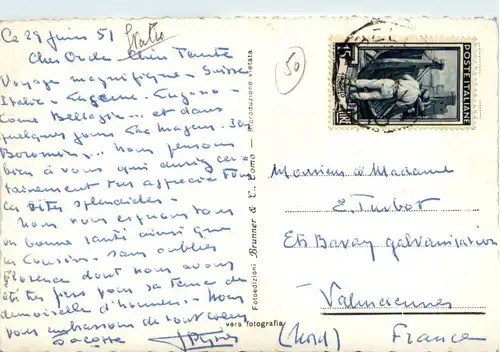 Ce 29 juin 51
Italie
Cher Oncle Chère Tante
Voyage magnifique - Suisse
Italie - Lucerne - Lugano -
Come Bellagio... et dans
quelques jours Lac Majeur. Iso
Boromées... nous pensons
bien à vous qui auriez cer-
tainement très apprécié tous
ces sites splendides -
Nous vous espérons tous
en bonne santé ainsi que
les Cousins - sans oublier
Florence dont nous avons
été très fiers pour sa tenue de
demoiselle d'honneur. - Nous
vous embrassons de tout coeur
vera fotografia
Fotoedizioni Brunner & C. Como - Riproduzione vietata
50
15 LIRE
POSTE ITALIANE
Monsieur & Madame
E. Turbot
Ets Bavay galvanisation
Valenciennes
(Nord) France